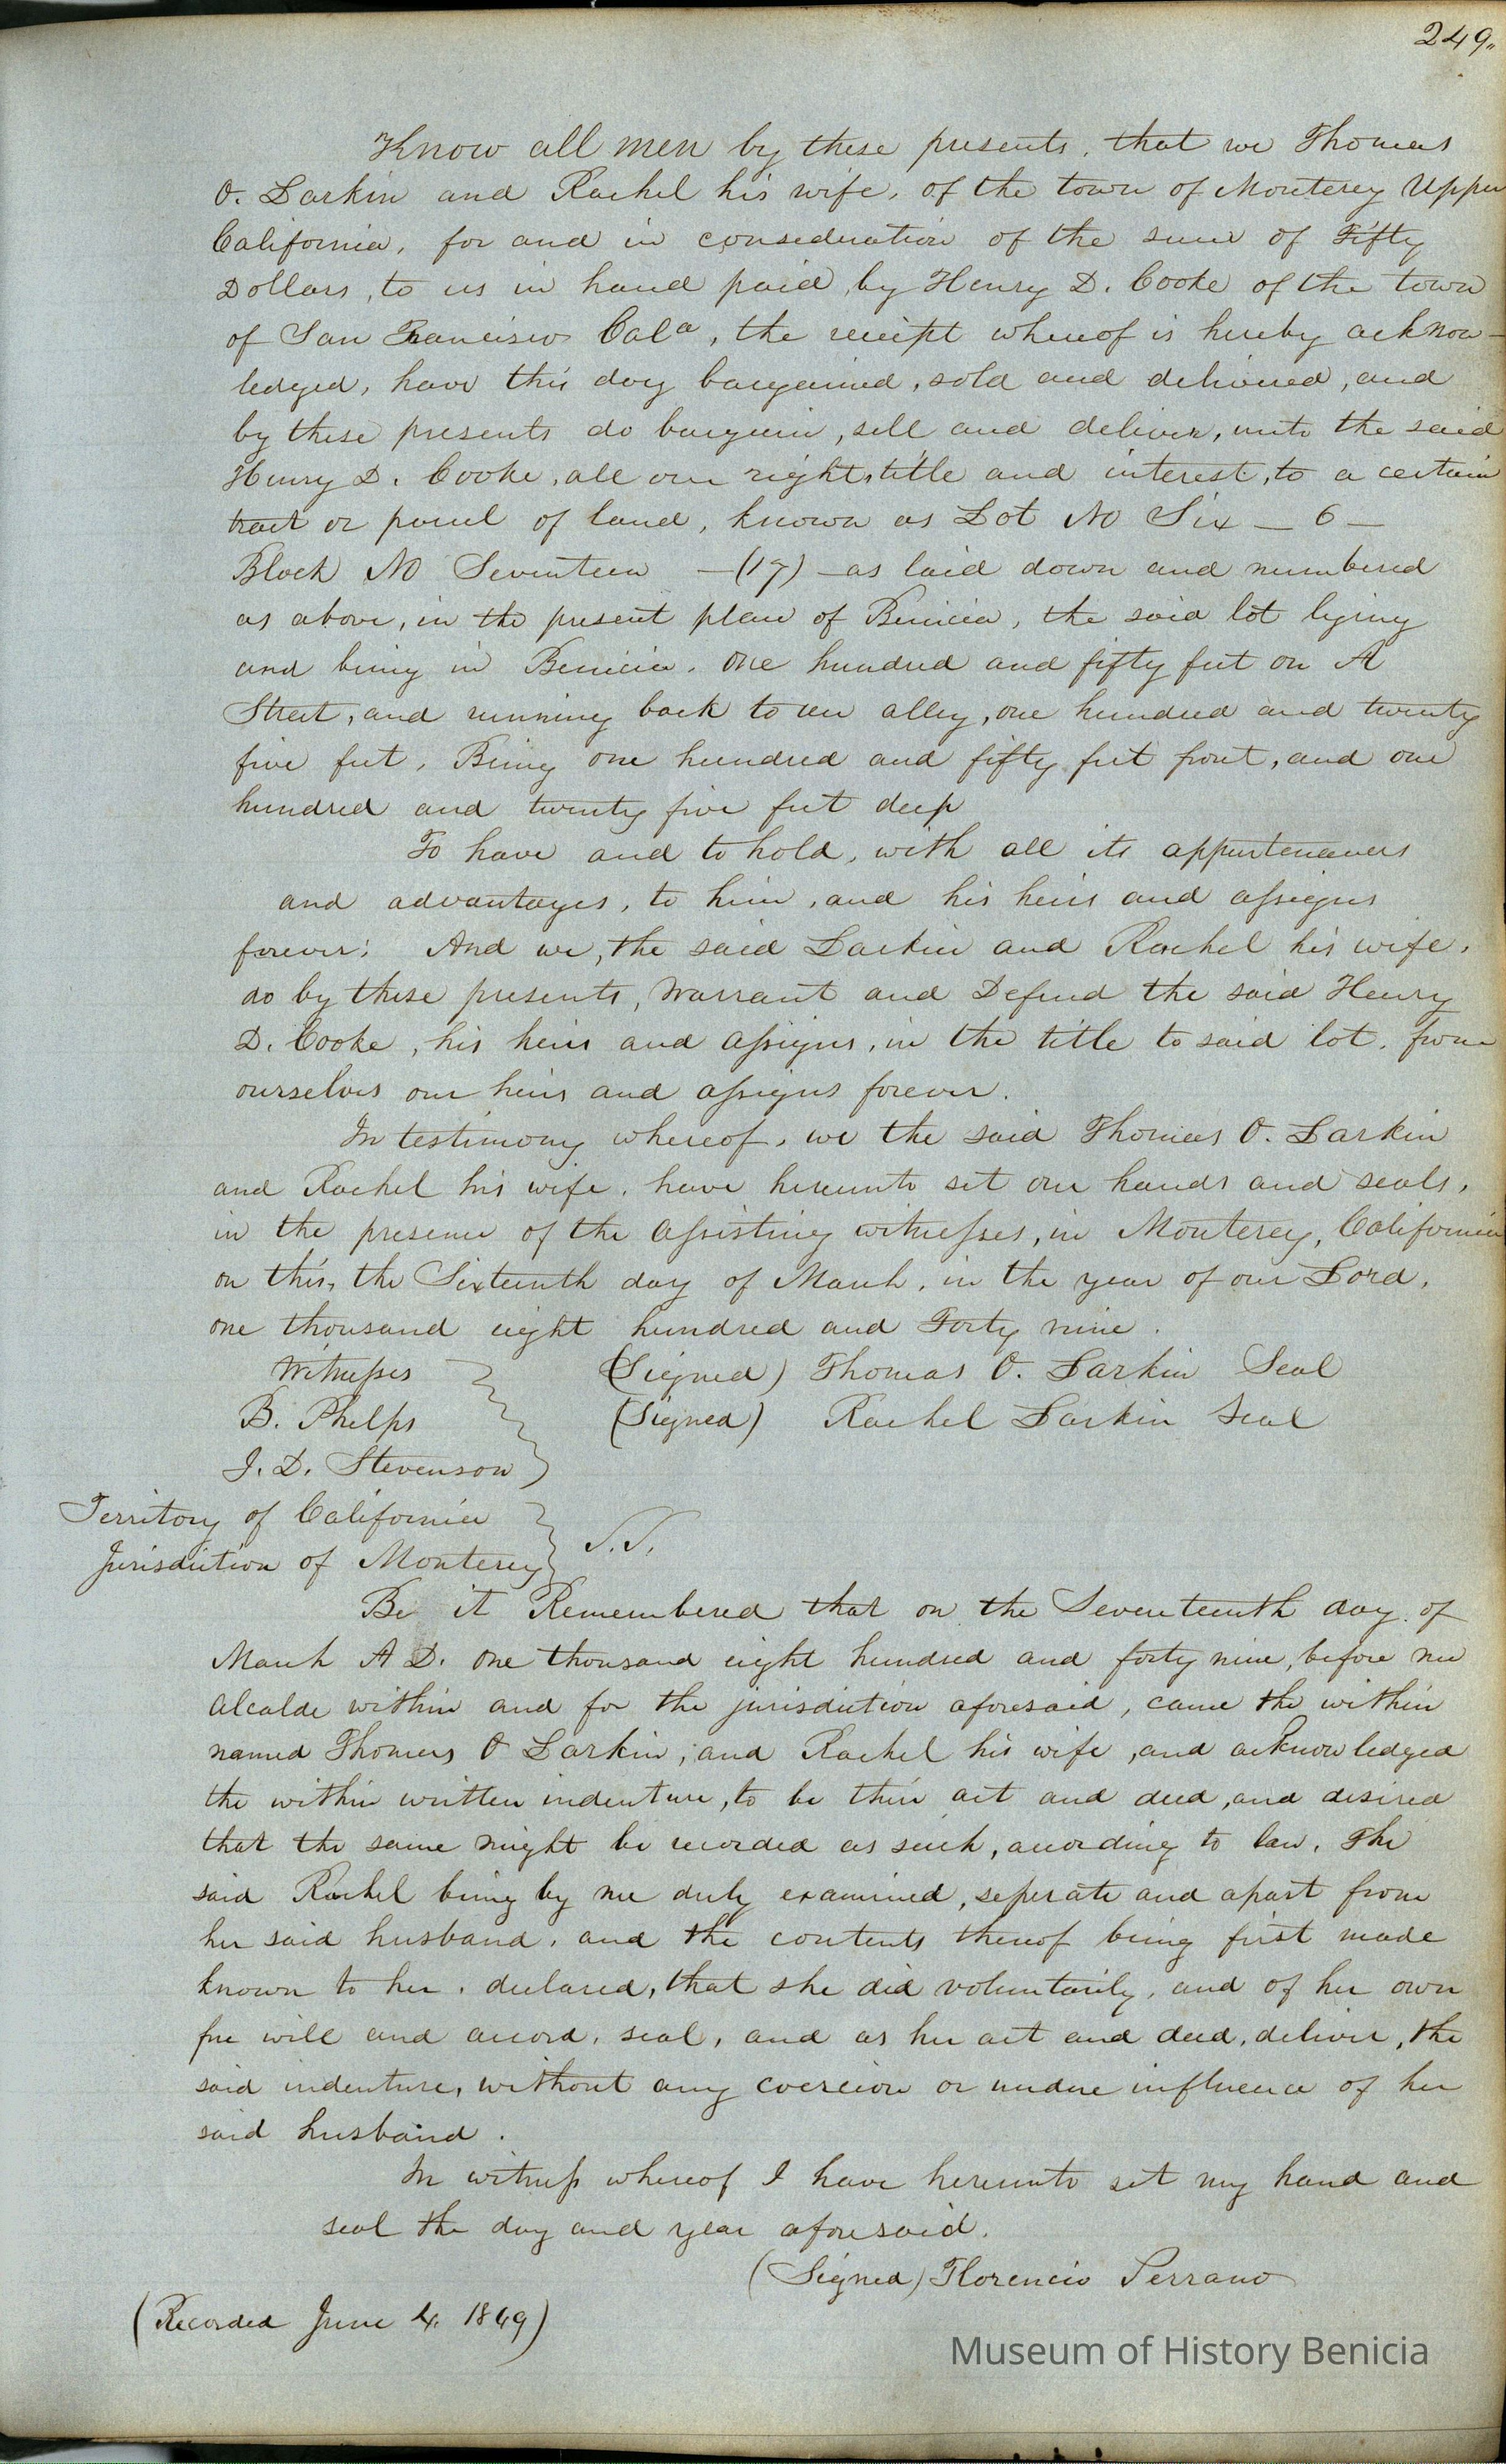 249.
Know all men by these presents, that we Thomas
O. Larkin and Rachel his wife, of the town of Monterey Upper
California, for and in consideration of the sum of Fifty
Dollars, to us in hand paid by Henry D. Cooke of the town
of San Francisco Cala, the receipt whereof is hereby acknow-
ledged, have this day bargained, sold and delivered, and
by these presents do bargain, sell and deliver, unto the said
Henry D. Cooke, all our right, title and interest, to a certain
tract or parcel of land, known as Lot No Six — 6 —
Block No Seventeen — (17) — as laid down and numbered
as above, in the present plan of Benicia, the said lot lying
and being in Benicia. One hundred and fifty feet on A
Street, and running back to an alley, one hundred and twenty
five feet, Being one hundred and fifty feet front, and one
hundred and twenty five feet deep
To have and to hold, with all its appurtenances
and advantages, to him, and his heirs and assigns
forever; And we, the said Larkin and Rachel his wife,
do by these presents, Warrant and Defend the said Henry
D. Cooke, his heirs and assigns, in the title to said lot, from
ourselves our heirs and assigns forever.
In testimony whereof, we the said Thomas O. Larkin
and Rachel his wife, have hereunto set our hands and seals,
in the presence of the assisting witnesses, in Monterey, California
on this, the Sixteenth day of March, in the year of our Lord,
one thousand eight hundred and Forty nine.
Witnesses (Signed) Thomas O. Larkin Seal
B. Phelps (Signed) Rachel Larkin Seal
J. D. Stevenson
Territory of California
Jurisdiction of Monterey S.S.
Be it Remembered that on the Seventeenth day of
March A D. one thousand eight hundred and forty nine, before me
Alcalde within and for the jurisdiction aforesaid, came the within
named Thomas O Larkin, and Rachel his wife, and acknowledged
the within written indenture, to be their act and deed, and desired
that the same might be recorded as such, according to law. The
said Rachel being by me duly examined, seperate and apart from
her said husband, and the contents thereof being first made
known to her, declared, that she did voluntarily, and of her own
free will and accord, seal, and as her act and deed, deliver, the
said indenture, without any coercion or undue influence of her
said husband.
In witness whereof I have hereunto set my hand and
seal the day and year aforesaid.
(Signed) Florencio Serrano
(Recorded June 4. 1849)
Museum of History Benicia